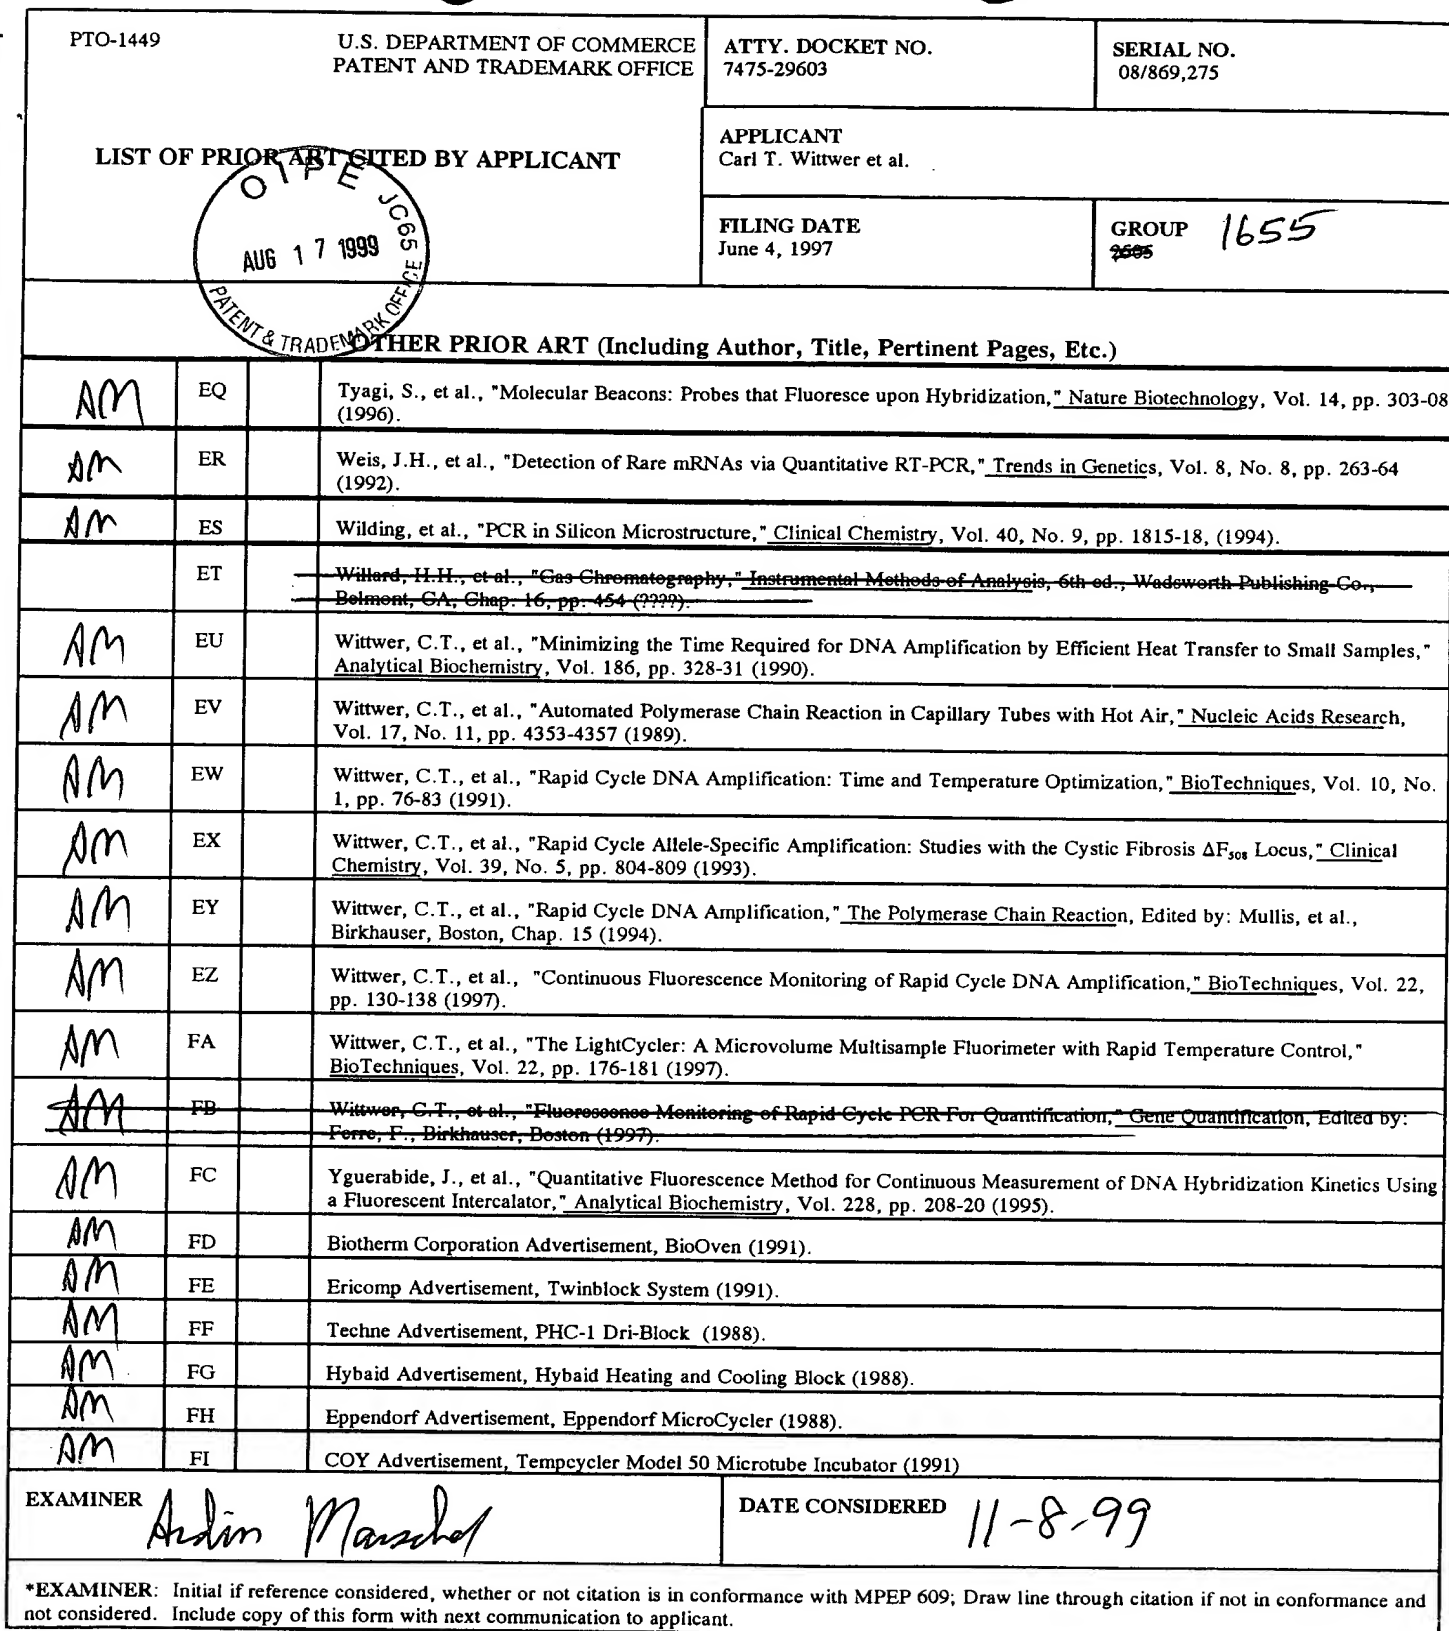 PTO-1449
U.S. DEPARTMENT OF COMMERCE
PATENT AND TRADEMARK OFFICE
ATTY. DOCKET NO.
7475-29603
SERIAL NO.
08/869,275
LIST OF PRIOR ART CITED BY APPLICANT
APPLICANT
Carl T. Wittwer et al.
OIPE JC65
AUG 17 1999
PATENT & TRADEMARK OFFICE
FILING DATE
June 4, 1997
GROUP 1655
2605
OTHER PRIOR ART (Including Author, Title, Pertinent Pages, Etc.)
AM EQ Tyagi, S., et al., "Molecular Beacons: Probes that Fluoresce upon Hybridization," Nature Biotechnology, Vol. 14, pp. 303-08
(1996).
AM ER Weis, J.H., et al., "Detection of Rare mRNAs via Quantitative RT-PCR," Trends in Genetics, Vol. 8, No. 8, pp. 263-64
(1992).
AM ES Wilding, et al., "PCR in Silicon Microstructure," Clinical Chemistry, Vol. 40, No. 9, pp. 1815-18, (1994).
ET Willard, H.H., et al., "Gas Chromatography," Instrumental Methods of Analysis, 6th ed., Wadsworth Publishing Co.,
Belmont, CA, Chap. 16, pp. 454 (????).
AM EU Wittwer, C.T., et al., "Minimizing the Time Required for DNA Amplification by Efficient Heat Transfer to Small Samples,"
Analytical Biochemistry, Vol. 186, pp. 328-31 (1990).
AM EV Wittwer, C.T., et al., "Automated Polymerase Chain Reaction in Capillary Tubes with Hot Air," Nucleic Acids Research,
Vol. 17, No. 11, pp. 4353-4357 (1989).
AM EW Wittwer, C.T., et al., "Rapid Cycle DNA Amplification: Time and Temperature Optimization," BioTechniques, Vol. 10, No.
1, pp. 76-83 (1991).
AM EX Wittwer, C.T., et al., "Rapid Cycle Allele-Specific Amplification: Studies with the Cystic Fibrosis ΔF₅₀₈ Locus," Clinical
Chemistry, Vol. 39, No. 5, pp. 804-809 (1993).
AM EY Wittwer, C.T., et al., "Rapid Cycle DNA Amplification," The Polymerase Chain Reaction, Edited by: Mullis, et al.,
Birkhauser, Boston, Chap. 15 (1994).
AM EZ Wittwer, C.T., et al., "Continuous Fluorescence Monitoring of Rapid Cycle DNA Amplification," BioTechniques, Vol. 22,
pp. 130-138 (1997).
AM FA Wittwer, C.T., et al., "The LightCycler: A Microvolume Multisample Fluorimeter with Rapid Temperature Control,"
BioTechniques, Vol. 22, pp. 176-181 (1997).
AM FB Wittwer, C.T., et al., "Fluorescence Monitoring of Rapid Cycle PCR For Quantification," Gene Quantification, Edited by:
Ferre, F., Birkhauser, Boston (1997).
AM FC Yguerabide, J., et al., "Quantitative Fluorescence Method for Continuous Measurement of DNA Hybridization Kinetics Using
a Fluorescent Intercalator," Analytical Biochemistry, Vol. 228, pp. 208-20 (1995).
AM FD Biotherm Corporation Advertisement, BioOven (1991).
AM FE Ericomp Advertisement, Twinblock System (1991).
AM FF Techne Advertisement, PHC-1 Dri-Block (1988).
AM FG Hybaid Advertisement, Hybaid Heating and Cooling Block (1988).
AM FH Eppendorf Advertisement, Eppendorf MicroCycler (1988).
AM FI COY Advertisement, Tempcycler Model 50 Microtube Incubator (1991)
EXAMINER Ardin Marschel
DATE CONSIDERED 11-8-99
*EXAMINER: Initial if reference considered, whether or not citation is in conformance with MPEP 609; Draw line through citation if not in conformance and
not considered. Include copy of this form with next communication to applicant.